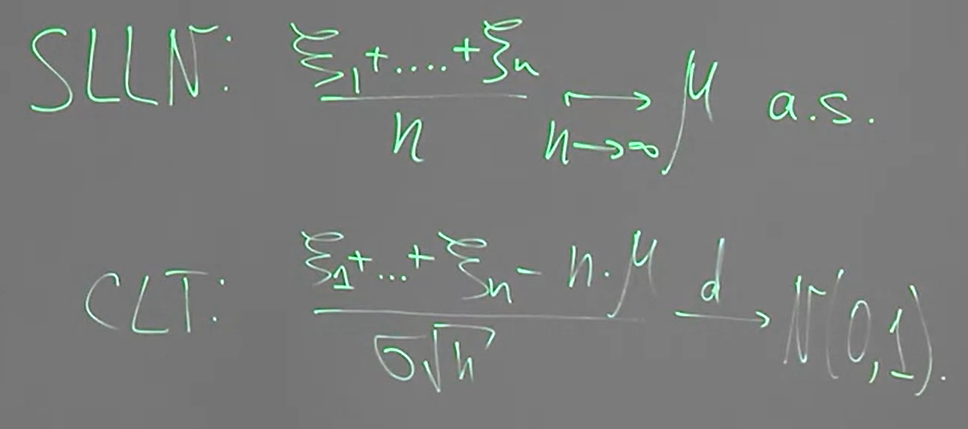 SLLN: (ξ₁+....+ξₙ)/n ⟶ n→∞ μ a.s.
CLT: (ξ₁+...+ξₙ - n·μ)/(σ√n) ⟶ d N(0,1).